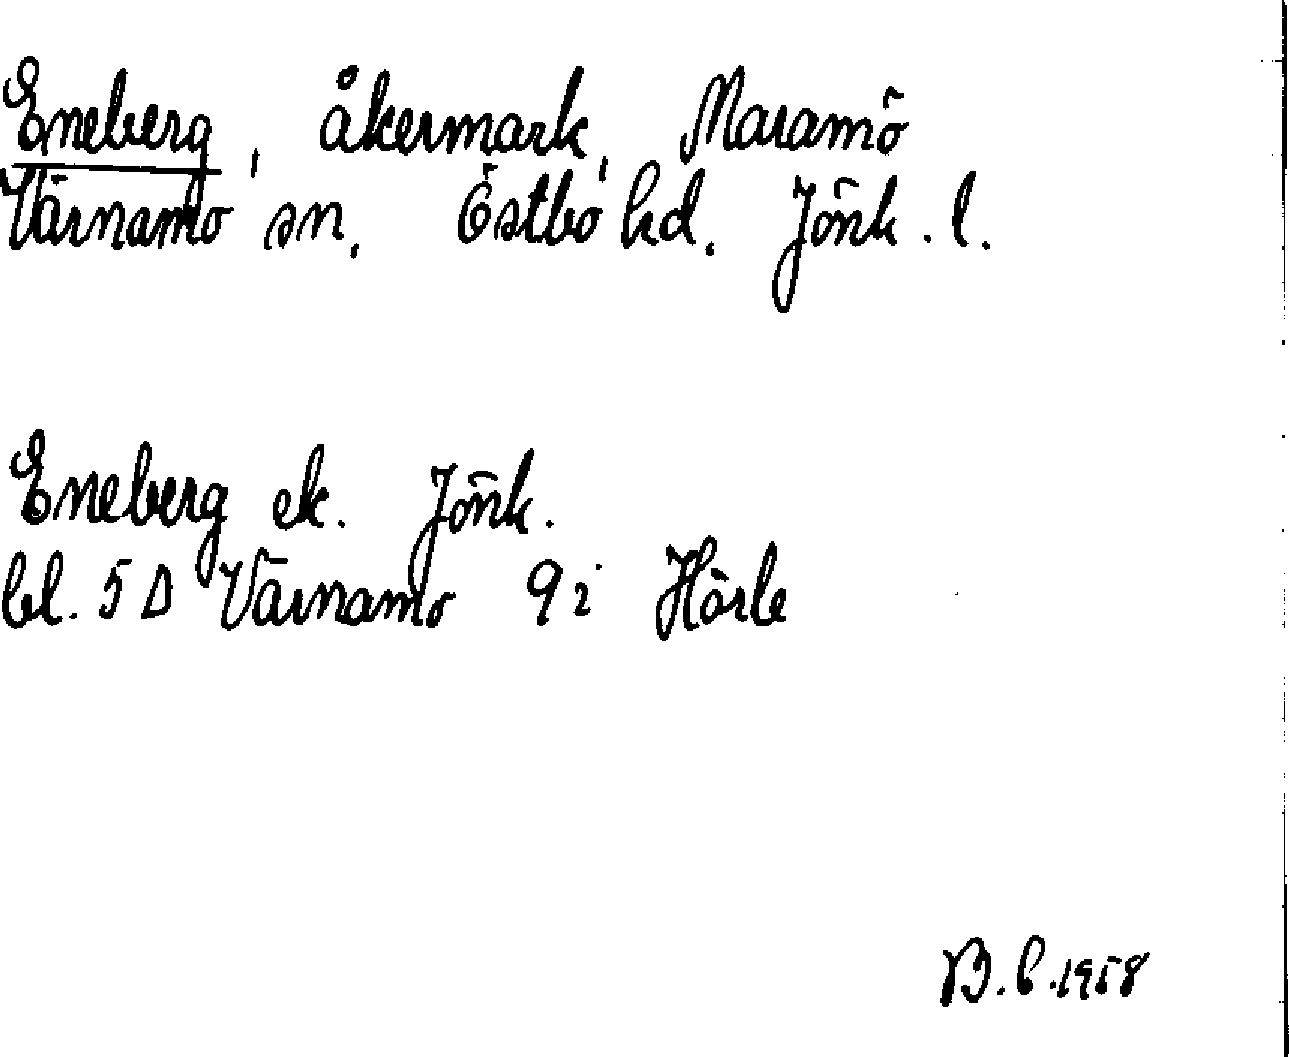 Eneberg, åkermark, Maramö
Värnamo sn. Östbo hd. Jönk. l.
Eneberg ek. Jönk.
bl. 5 D Värnamo 9 i Hörle
B. C. 1958